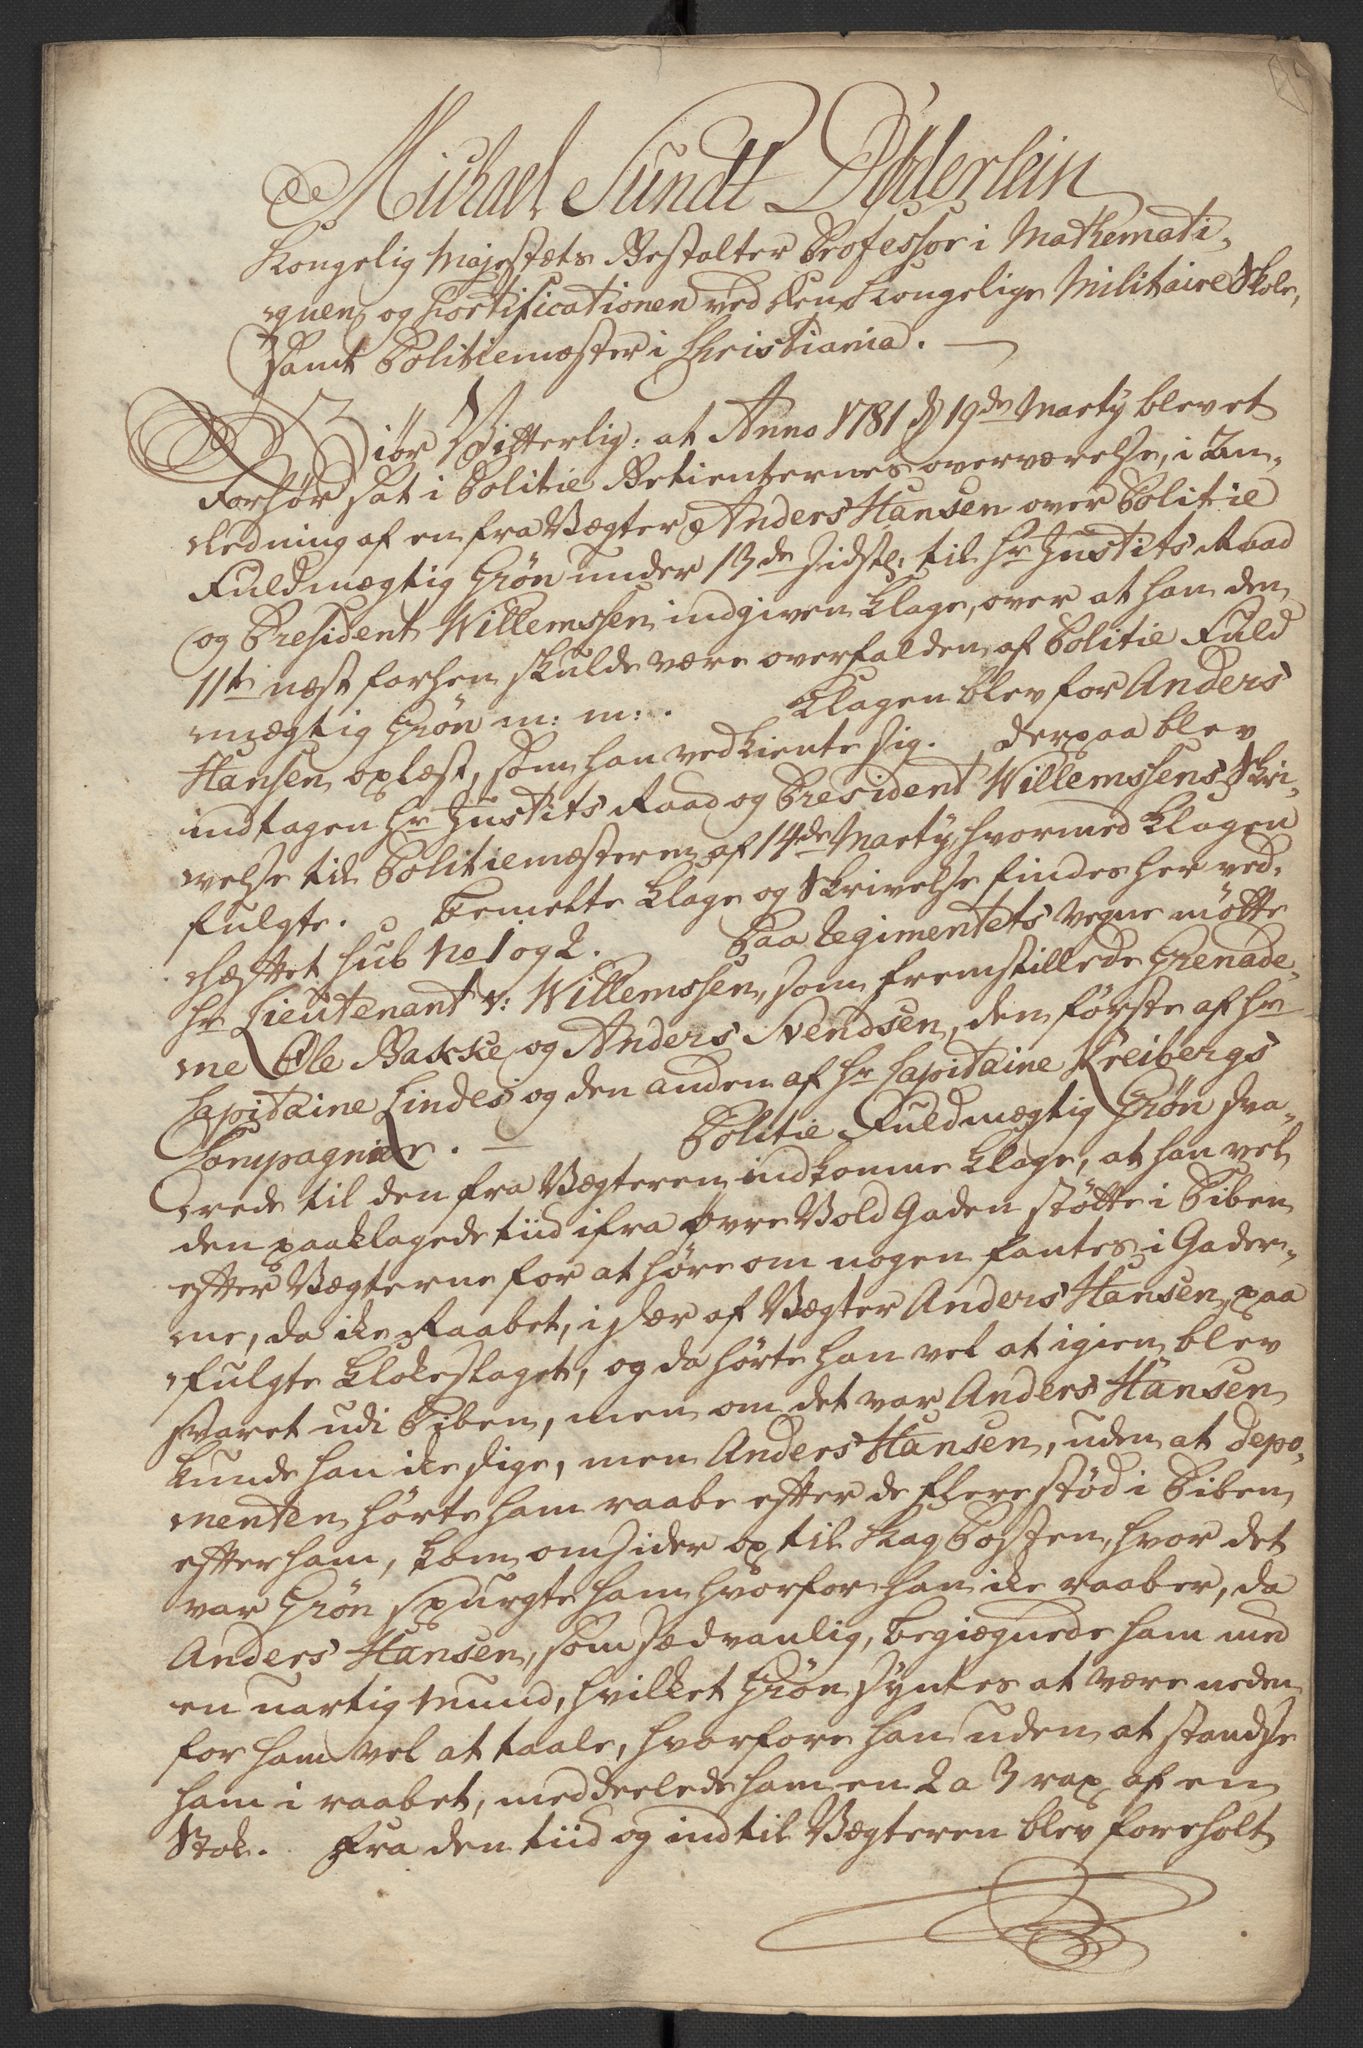 Michael Sundt Døderlein
Kongelig Majestæts Bestalter Professor i Mathemati¬
quen og Fortificationen ved den Kongelige Militaire Skole,
samt Politiemæster i Christiania. —
Giør Vitterlig: at Anno 1781 d 19de Marty blev et
Forhør sat i Politie Betienternes overværelse, i An¬
ledning af en fra Vægter Anders Hansen over Politie
Fuldmægtig Grøn under 13de sidstl: til Hr Justits Raad
og President Willemssen indgiven Klage, over at han den
11te næst forhen skulde være overfalden af Politie Fuld
mægtig Grøn m: m: . Klagen blev for Anders
Hansen oplæst, som han vedkiente sig. derpaa blev
indtagen Hr Justits Raad og President Willemssens Skri¬
velse til Politiemæsteren af 14de Marty, hvormed Klagen
fulgte. bemelte Klage og Skrivelse findes her ved¬
hæftet sub No 1 og 2. Paa Regimentets vegne mødte
Hr Lieutenant v: Willemssen, som fremstillede Grenade¬
rne Ole Bakke og Anders Svendsen, den første af Hr
Capitaine Lindes og den anden af Hr Capitaine Kreibergs
Compagnier. — Politie Fuldmægtig Grøn sva¬
rede til den fra Vægteren indkomne Klage, at han vel
den paaklagede tiid ifra øvre Vold Gaden støtte i Piben
efter Vægterne for at høre om nogen fantes i Gader¬
ne, da ike Raabet, i sær af Vægter Anders Hansen, paa
fulgte Klokeslaget, og da hørte han vel at igien blev
svaret udi Piben, men om det var Anders Hansen
kunde han ike sige, men Anders Hansen, uden at Depo¬
nenten hørte ham raabe efter de flere stød i Piben
efter ham, kom omsider op til Skag Posten, hvor det
var Grøn spurgte ham hvorfor han ike raaber, da
Anders Hansen, som sædvanlig, begiægnede ham med
en uartig Mund, hvilket Grøn syntes at være neden
for ham vel at taale, hvorfore han uden at standse
ham i raabet, meddeelede ham en 2 a 3 rap af en
Stok. Fra den tiid og indtil Vægteren blev foreholt